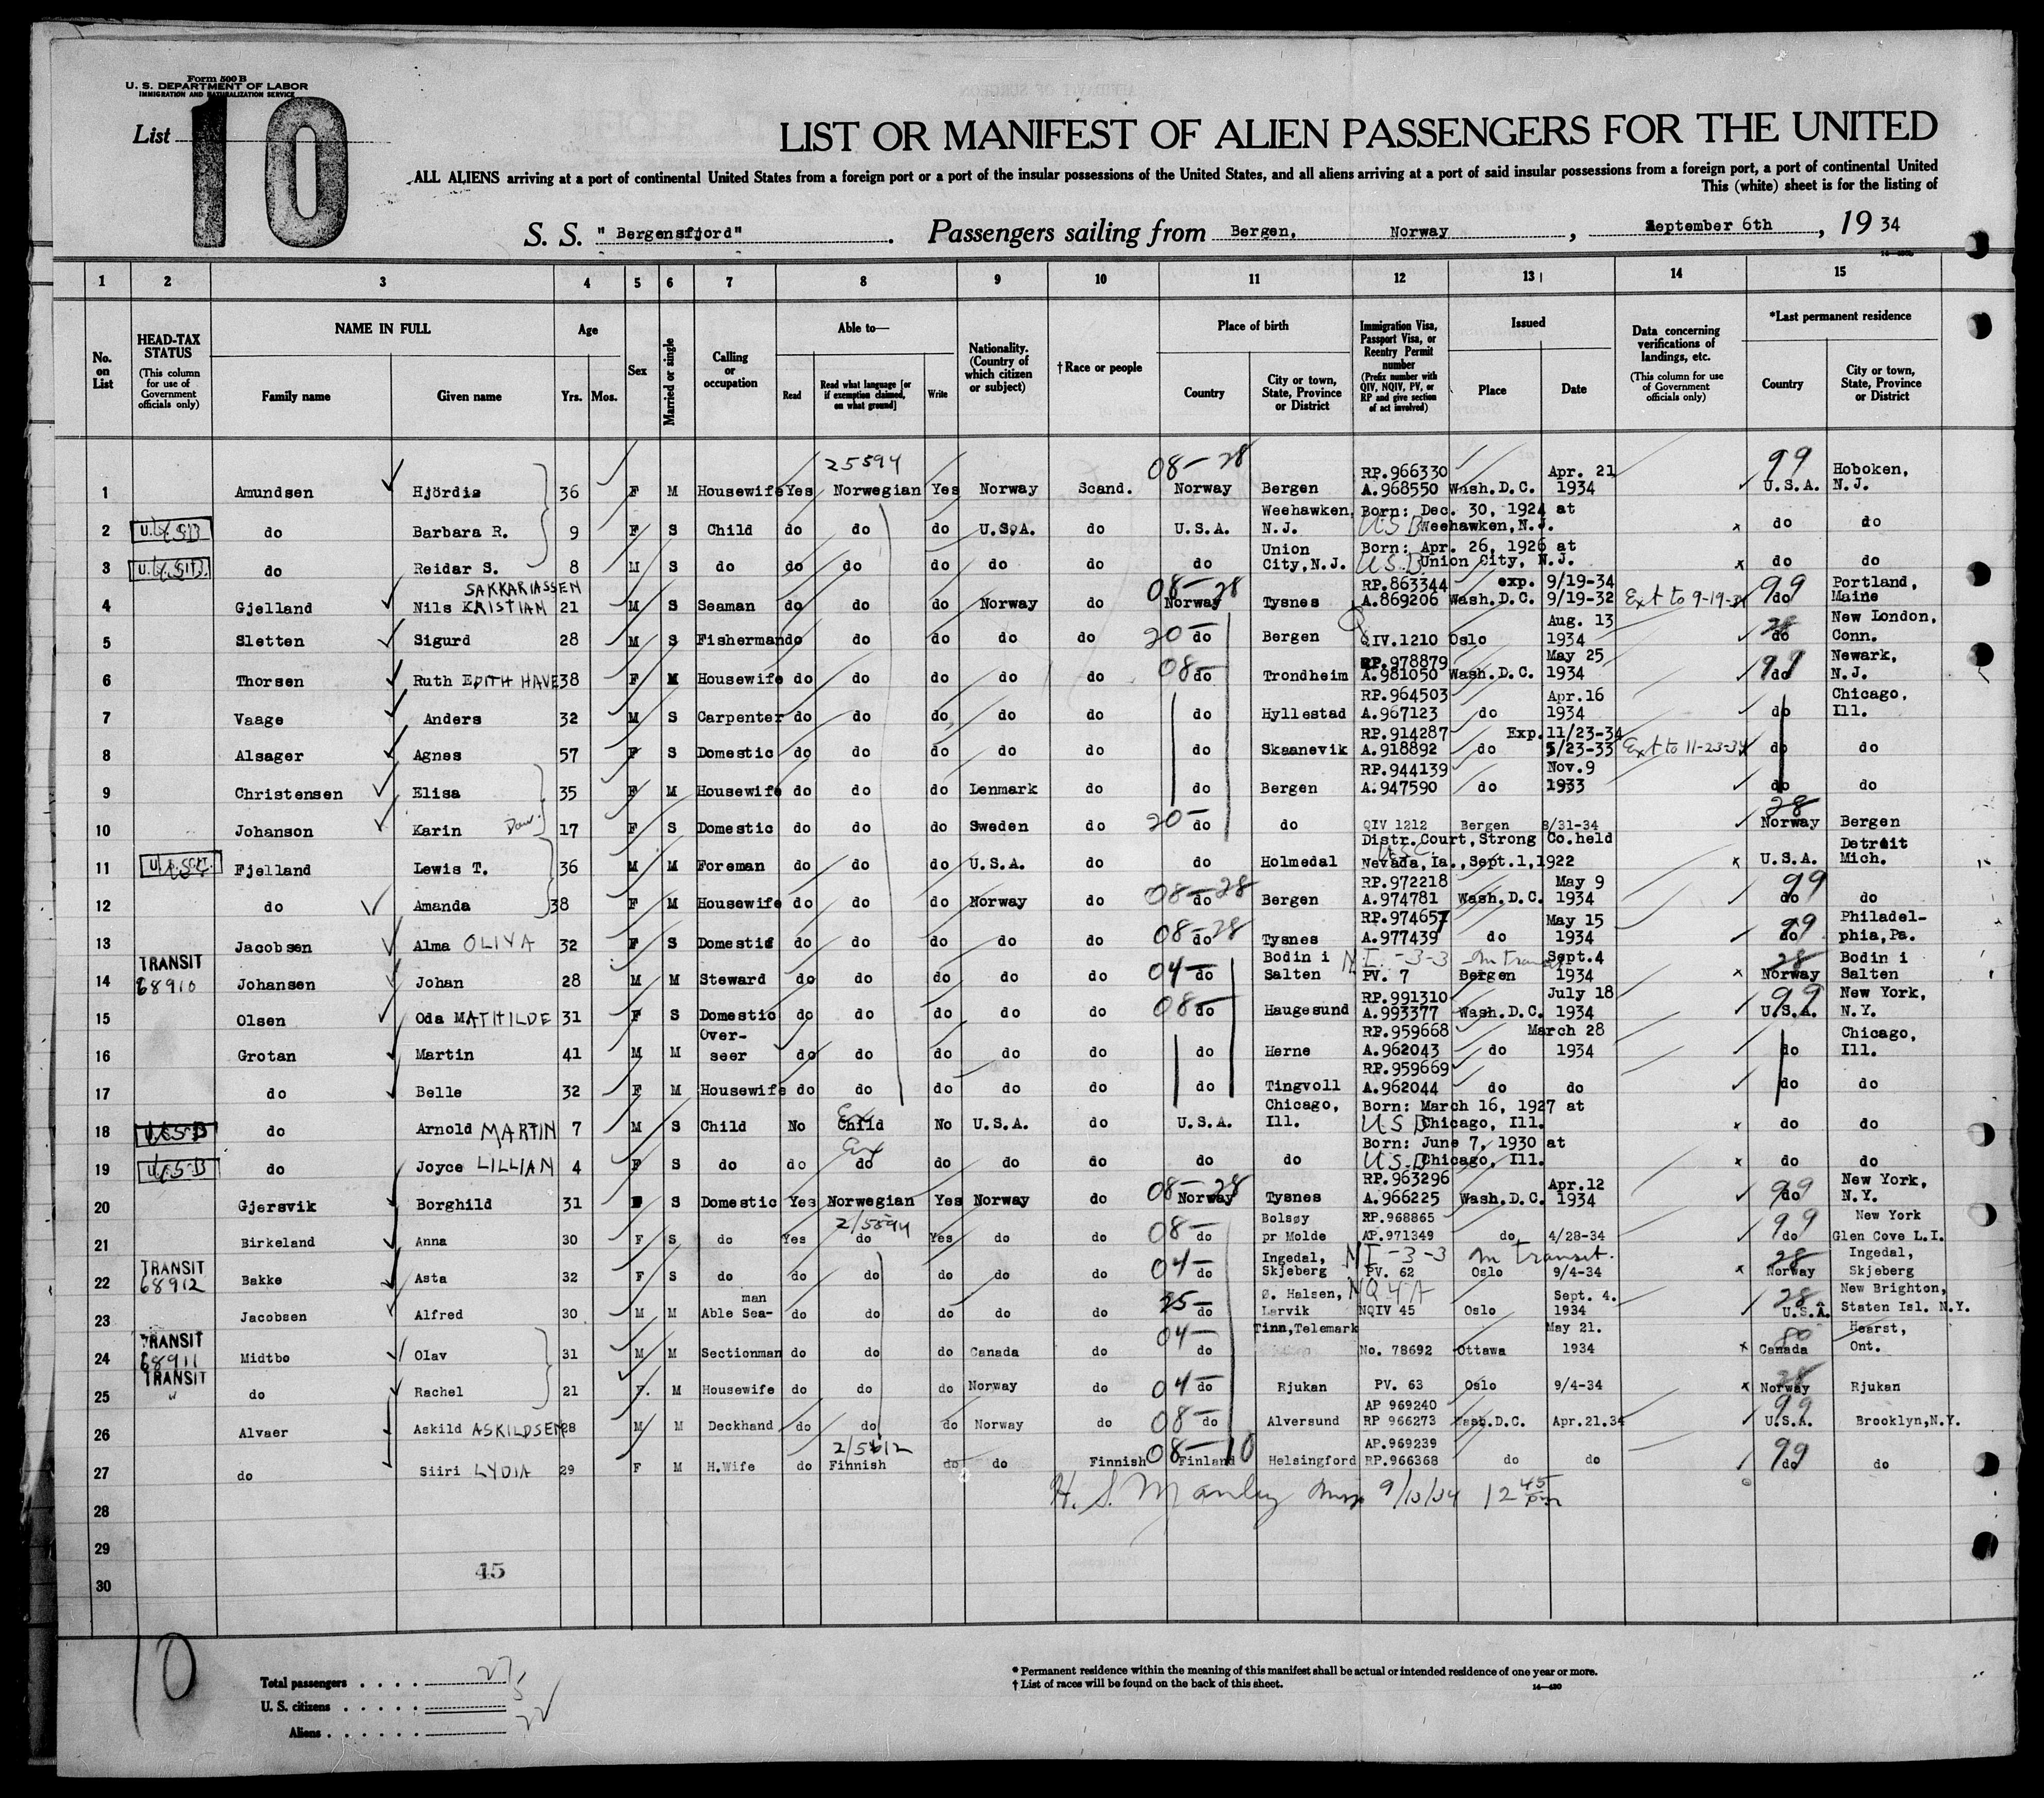 Form 500 B
U. S. DEPARTMENT OF LABOR
IMMIGRATION AND NATURALIZATION SERVICE
List 10
LIST OR MANIFEST OF ALIEN PASSENGERS FOR THE UNITED
ALL ALIENS arriving at a port of continental United States from a foreign port or a port of the insular possessions of the United States, and all aliens arriving at a port of said insular possessions from a foreign port, a port of continental United
This (white) sheet is for the listing of
S. S. "Bergensfjord". Passengers sailing from Bergen, Norway, September 6th, 19 34
1 2 3 4 5 6 7 8 9 10 11 12 13 14 15
No. on List
HEAD-TAX STATUS (This column for use of Government officials only)
NAME IN FULL Family name Given name
Age Yrs. Mos.
Sex
Married or single
Calling or occupation
Able to— Read Read what language [or if exemption claimed, on what ground] Write
Nationality. (Country of which citizen or subject)
†Race or people
Place of birth Country City or town, State, Province or District
Immigration Visa, Passport Visa, or Reentry Permit number (Prefix number with QIV, NQIV, PV, or RP and give section of act involved)
Issued Place Date
Data concerning verifications of landings, etc. (This column for use of Government officials only)
*Last permanent residence Country City or town, State, Province or District
25594 08-28 RP.966330 Apr. 21 99 Hoboken,
1 Amundsen Hjördis 36 F M Housewife Yes Norwegian Yes Norway Scand. Norway Bergen A.968550 Wash.D.C. 1934 U.S.A. N.J.
Weehawken, Born: Dec. 30, 1924 at
2 U.S.B do Barbara R. 9 F S Child do do do U.S.A. do U.S.A. N.J. USB Weehawken, N.J. do do
Union Born: Apr. 26, 1926 at
3 U.S.B. do Reidar S. 8 M S do do do do do do do City, N.J. U.S.B. Union City, N.J. do do
SAKKARIASSEN 08-28 RP.863344 exp. 9/19-34 99 Portland,
4 Gjelland Nils KRISTIAN 21 M S Seaman do do do Norway do Norway Tysnes A.869206 Wash.D.C. 9/19-32 Ext to 9-19-34 do Maine
20- Aug. 13 28 New London,
5 Sletten Sigurd 28 M S Fisherman do do do do do do Bergen QIV.1210 Oslo 1934 do Conn.
08- RP.978879 May 25 99 Newark,
6 Thorsen Ruth EDITH HAVE 38 F M Housewife do do do do do do Trondheim A.981050 Wash.D.C. 1934 do N.J.
RP.964503 Apr.16 Chicago,
7 Vaage Anders 32 M S Carpenter do do do do do do Hyllestad A.967123 do 1934 do Ill.
RP.914287 Exp.11/23-34
8 Alsager Agnes 57 F S Domestic do do do do do do Skaanevik A.918892 do 5/23-33 Ext to 11-23-34 do do
RP.944139 Nov.9
9 Christensen Elisa 35 F M Housewife do do do Lenmark do do Bergen A.947590 do 1933 do do
20- 28
10 Johanson Karin Dau. 17 F S Domestic do do do Sweden do do do QIV 1212 Bergen 8/31-34 Norway Bergen
Distr.Court, Strong Co.held Detroit
11 U.S.C. Fjelland Lewis T. 36 M M Foreman do do do U.S.A. do do Holmedal U.S.C. Nevada, Ia., Sept.1,1922 U.S.A. Mich.
08-28 RP.972218 May 9 99
12 do Amanda 38 F M Housewife do do do Norway do do Bergen A.974781 Wash.D.C. 1934 do do
08-28 RP.974657 May 15 99 Philadel-
13 Jacobsen Alma OLIVA 32 F S Domestic do do do do do do Tysnes A.977439 do 1934 do phia, Pa.
TRANSIT 04- Bodin i NI-3-3 In transit Sept.4 28 Bodin i
14 68910 Johansen Johan 28 M M Steward do do do do do do Salten PV. 7 Bergen 1934 Norway Salten
08- RP.991310 July 18 99 New York,
15 Olsen Oda MATHILDE 31 F S Domestic do do do do do do Haugesund A.993377 Wash.D.C. 1934 U.S.A. N.Y.
Over- RP.959668 March 28 Chicago,
16 Grotan Martin 41 M M seer do do do do do do Herne A.962043 do 1934 do Ill.
RP.959669
17 do Belle 32 F M Housewife do do do do do do Tingvoll A.962044 do do do do
Ex Chicago, Born: March 16, 1927 at
18 U.S.B do Arnold MARTIN 7 M S Child No Child No U.S.A. do U.S.A. Ill. USB Chicago, Ill. do do
Ex Born: June 7, 1930 at
19 U.S.B do Joyce LILLIAN 4 F S do do do do do do do do U.S.B Chicago, Ill. do do
08-28 RP.963296 Apr.12 99 New York,
20 Gjersvik Borghild 31 F S Domestic Yes Norwegian Yes Norway do Norway Tysnes A.966225 Wash.D.C. 1934 do N.Y.
2/5594 08- Bolsøy RP.968865 99 New York
21 Birkeland Anna 30 F S do Yes do Yes do do do pr Molde AP.971349 do 4/28-34 do Glen Cove L.I.
TRANSIT 04- Ingedal, NI-3-3 In transit. 28 Ingedal,
22 68912 Bakke Asta 32 F S do do do do do do do Skjeberg PV. 62 Oslo 9/4-34 Norway Skjeberg
man 25- Ø. Halsen, NQ4A Sept. 4. 28 New Brighton,
23 Jacobsen Alfred 30 M M Able Sea- do do do do do do Larvik NQIV 45 Oslo 1934 U.S.A. Staten Isl. N.Y.
TRANSIT 04- Tinn, Telemark May 21. 80 Hearst,
24 68911 Midtbo Olav 31 M M Sectionman do do do Canada do do No. 78692 Ottawa 1934 Canada Ont.
TRANSIT 04- 28
25 " do Rachel 21 F. M Housewife do do do Norway do do Rjukan PV. 63 Oslo 9/4-34 Norway Rjukan
08- AP 969240 99
26 Alvaer Askild ASKILDSEN 28 M M Deckhand do do do Norway do do Alversund RP 966273 Wash.D.C. Apr.21.34 U.S.A. Brooklyn, N.Y.
2/5612 08-10 AP.969239 99
27 do Siiri LYDIA 29 F M H.Wife do Finnish do do Finnish Finland Helsingford RP.966368 do do do do
H. S. Manley 9/15/34 12 45 pm
28
29
30
45
10
Total passengers . . . . 27
U. S. citizens . . . . . 5
Aliens . . . . . . 22
* Permanent residence within the meaning of this manifest shall be actual or intended residence of one year or more.
† List of races will be found on the back of this sheet.
14—430